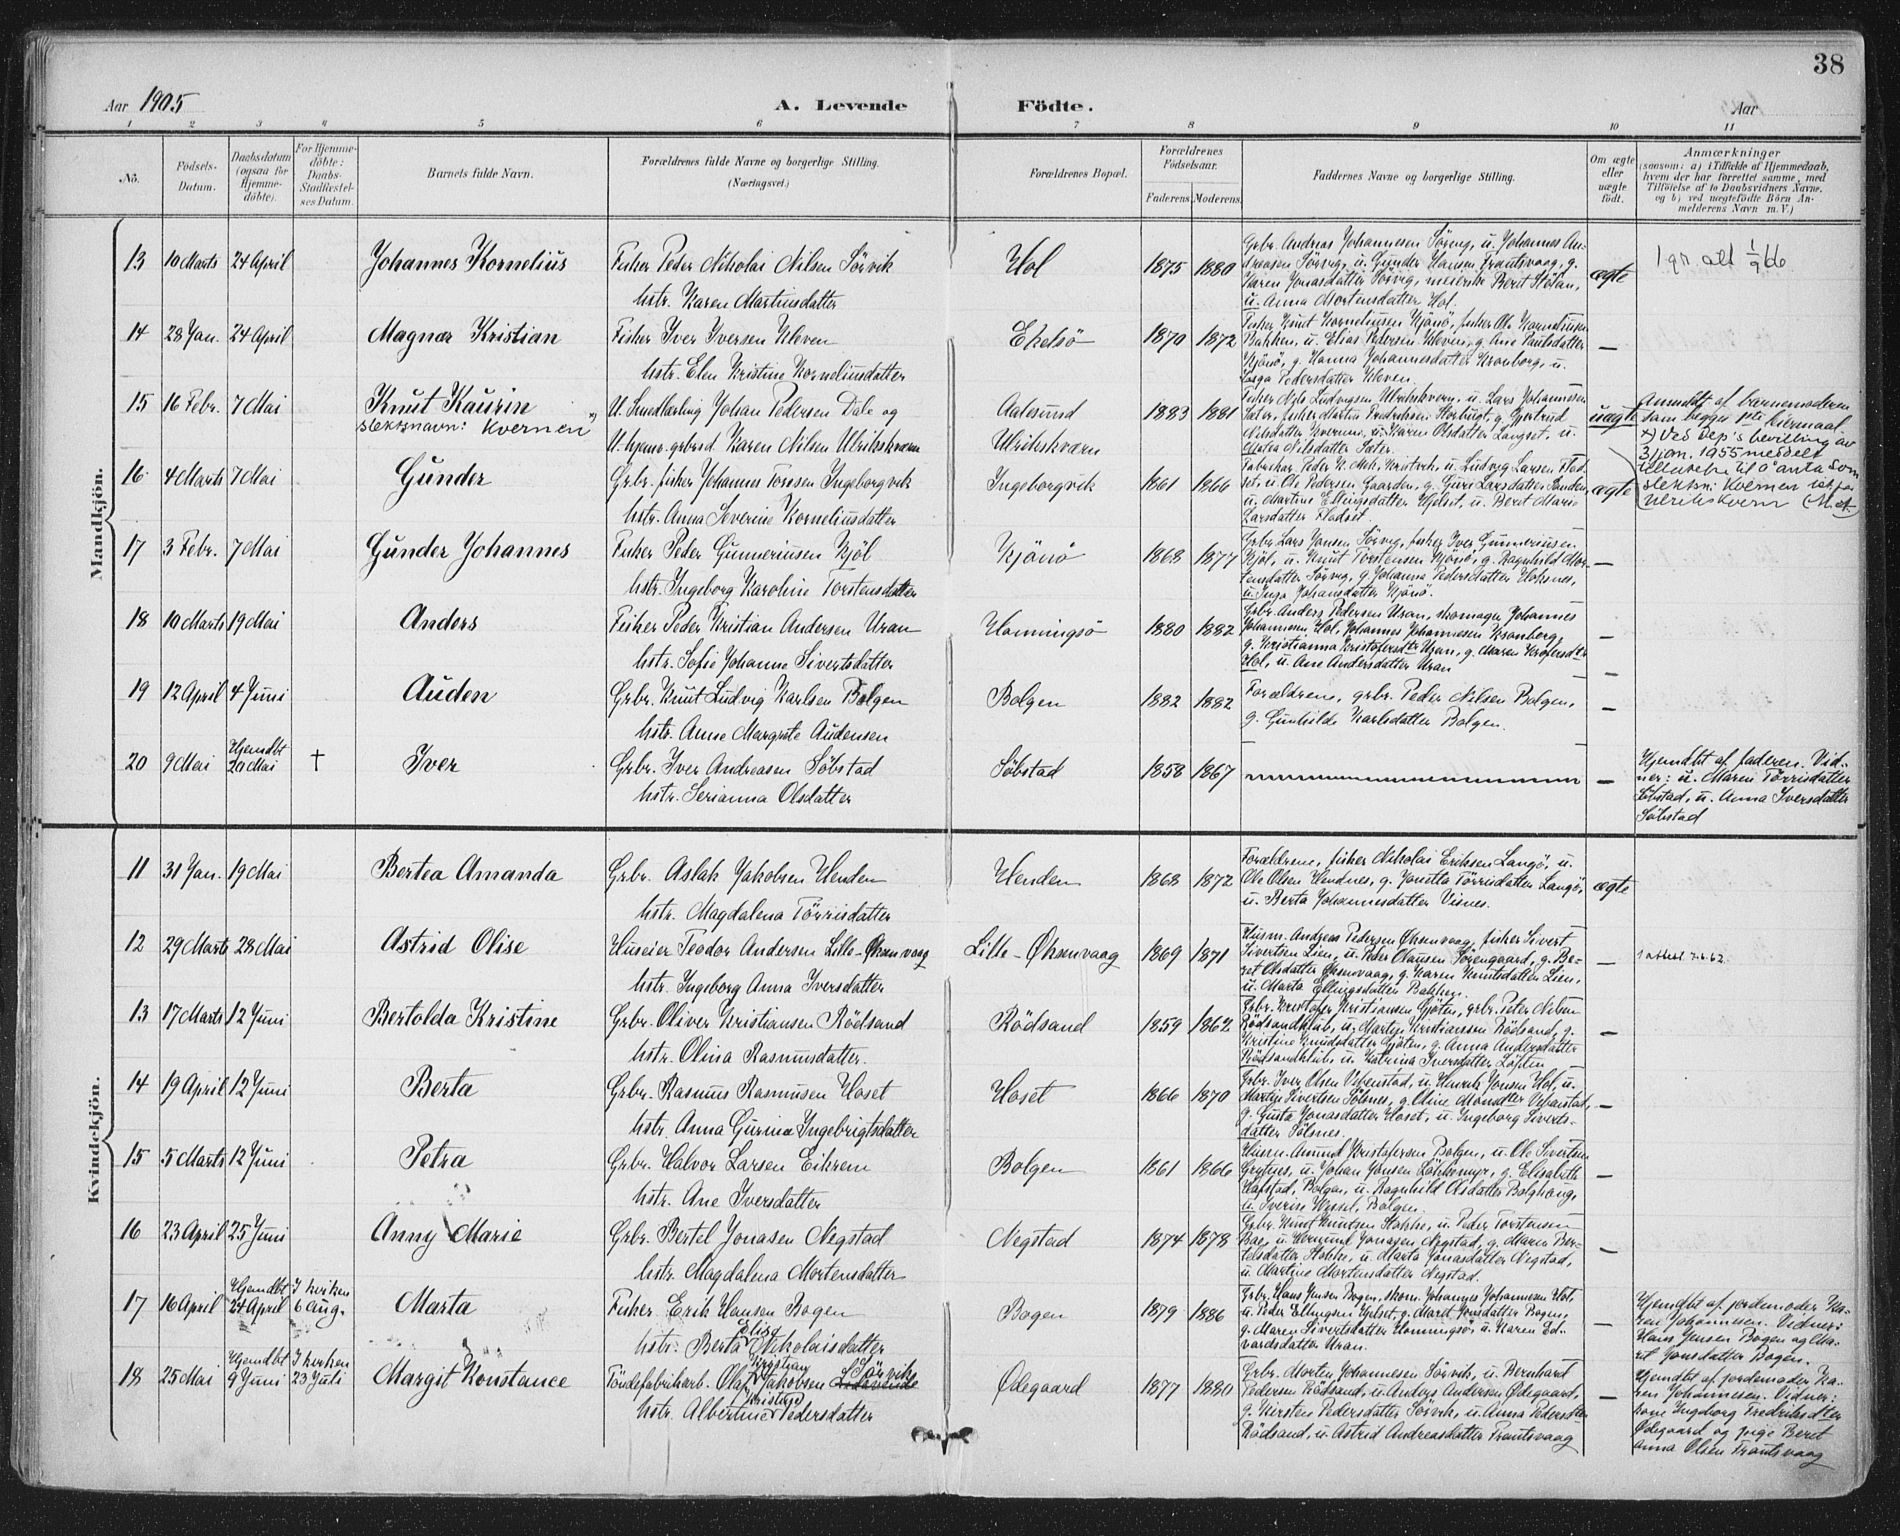 38
Aar 1905
A. Levende Födte.
Aar
1 2 3 4 5 6 7 8 9 10 11
No.
Födsels-Datum.
Daabsdatum (ogsaa for Hjemmedöbte).
For Hjemmedöbte: Daabs-Stadfæstelses Datum.
Barnets fulde Navn.
Forældrenes fulde Navne og borgerlige Stilling. (Næringsvei.)
Forældrenes Bopæl.
Forældrenes Födselsaar.
Faderens Moderens
Faddernes Navne og borgerlige Stilling.
Om ægte eller uægte födt.
Anmærkninger
(saasom: a) i Tilfælde af Hjemmedaab, hvem der har forrettet samme, med Tilföielse af to Daabsvidners Navne, og b) ved uægtefödte Börn Anmelderens Navn m. V.)
Mandkjön.
13 10 Marts 24 April Johannes Kornelius Fisker Peder Nikolai Nilsen Sörvik Hol 1875 1880 ægte
hstr. Karen Martinsdatter
Grbr. Andreas Johannesen Sörvig, u. Johannes An-
dreasen Sörvig, u. Gunder Hansen Frantsvaag, g.
Karen Jonasdatter Sörvig, meierske Berit Stölan,
u. Anna Mortensdatter Hol.
14 28 Jan. 24 April Magnar Kristian Fisker Iver Iversen Kleven Ekelsö 1870 1872 —
hstr. Elen Kristine Korneliusdatter
Fisker Knut Korneliusen Kjönö, fisker Ole Korneliusen
Bakken, u. Elias Pedersen Kleven, g. Ane Paulsdatter
Kjönö, g. Hanna Johannesdatter Kronborg, u.
Pedersdatter Kleven.
15 16 Febr. 7 Mai Knut Kaurin U. Smedkarling Johan Pedersen Dale og Aalesund 1883 1881 uægte
slektsnavn: Kvernen x)
U. hjemv. grbrd. Karen Nilsen Ulrikskværn Ulrikskværn
Fisker Nils Ludvigsen Ulrikskvern, u. Lars Johannesen
Sæter, fisker Martin Fredriksen g. Gjertrud
Nilsdatter Kvernen, u. Karen Olsdatter Langset, u.
Nilsdatter Sæter.
Anmeldt af barnemoderen
som begges 1ste leiermaal.
x) Ved Dep's bevilling av
31 jan. 1955 meddelt
tillatelse til å anta som
slektsn: Kvernen istf.
Ulrikskvern
16 4 Marts 7 Mai Gunder Grbr. fisker Johannes Toresen Ingeborgvik Ingeborgvik 1861 1866 ægte
hstr. Anna Severine Korneliusdatter
u. Ludvig Larsen Flad-
set, u. Ole Pedersen Gaarden, g. Guri Larsdatter Linden,
u. Martine Ellingsdatter Hjelset, u. Beret Marie
Larsdatter Fladset
17 3 Febr. 7 Mai Gunder Johannes Fisker Peder Gunneriusen Kjöl Kjönö 1868 1877 —
hstr. Ingeborg Karoline Torstensdatter
Grbr. Lars Jonsen Sörvig, fisker Iver Gunneriusen
Kjöl, u. Knut Torstensen Kjönö, g. Ragnhild Mor-
tensdatter Sörvig, g. Johanna Pedersdatter Hoksnes,
u. Inga Johansdatter Kjönö.
18 10 Marts 19 Mai Anders Fisker Peder Kristian Andersen Uran Honningsö 1880 1882 —
hstr. Sofie Johanne Sivertsdatter
Grbr. Anders Pedersen Uran, skomager Johannes
Johannesen Hol, Johannes Johannesen Kronberg,
g. Kristianna Kristofersdtr Uran, g. Maren
Hol, u. Ane Andersdatter Uran
19 12 April 4 Juni Auden Grbr. Knut Ludvig Karlsen Bolgen Bolgen 1882 1882 —
hstr. Anne Margrete Audensen
Forældrene, grbr. Peder Nilsen Bolgen,
g. Gunhilde Karlsdatter Bolgen.
20 9 Mai Hjemdbt 20 Mai † Iver Grbr. Iver Andreasen Söbstad Söbstad 1858 1867 —
hstr. Serianna Olsdatter
Hjemdbt af faderen. Vid-
ner: u. Maren Törrisdatter
Söbstad, u. Anna Iversdatter
Söbstad
Kvindekjön.
11 31 Jan. 19 Mai Bertea Amanda Grbr. Aslak Jakobsen Henden Henden 1868 1872 ægte
hstr. Magdalena Törrisdatter
Forældrene, fisker Nikolai Eriksen Langö, u.
Ole Olsen Hendnes, g. Jonetta Törrisdatter Langö,
u. Berta Johannesdatter Visnes.
12 29 Marts 28 Mai Astrid Olise Huseier Teodor Andersen Lille-Öksenvaag Lille-Öksenvaag 1869 1871 —
hstr. Ingeborg Anna Iversdatter
Husm. Andreas Pedersen Öksenvaag, fisker Sivert
Sivertsen Lien, u. Peder Olausen Sörengaard, g. Be-
ret Olsdatter Öksenvaag, g. Karen Knutsdatter Lien,
u. Marta Ellingsdatter Bakken.
13 17 Marts 12 Juni Bertolda Kristine Grbr. Oliver Kristiansen Rödsand Rödsand 1859 1862 —
hstr. Olina Rasmusdatter.
Grbr. Kristofer Kristiansen Gjöten, grbr. Peter Nilsen
Rödsandklub, u. Martin Kristiansen Rödsand, g.
Kristine Knudsdatter Gjöten, g. Anna Andersdatter
Rödsandklub, u. Katrina Iversdatter
14 19 April 12 Juni Berta Grbr. Rasmus Rasmusen Hoset Hoset 1866 1870 —
hstr. Anna Gurine Ingebrigtsdatter
Grbr. Iver Olsen Vebenstad, u. Henrik Jonsen Hol, u.
Martin Sivertsen Sölsnes, g. Oline Monsdtr Vebenstad,
g. Gusta Jonasdatter Hoset, u. Ingeborg Siverts-
datter Sölsnes.
15 5 Marts 12 Juni Petra Grbr. Halvor Larsen Eikrem Bolgen 1861 1866 —
hstr. Ane Iversdatter
Husm. Amund Kristofersen Bolgen, u. Ole Sivertsen
u. Johan Jonsen g. Elisabeth
Hafstad, Bolgen, u. Ragnhild Olsdatter Bolghaug,
u. Iverine Wessel, Bolgen.
16 23 April 25 Juni Anny Marie Grbr. Bertel Jonasen Negstad Negstad 1874 1878 —
hstr. Magdalena Mortensdatter
Grbr. Knut Knutsen Stokke, u. Peder Torstensen
Bae, u. Jonasen Negstad, g. Maren Ber-
telsdatter Stokke, u. Marta Jonasdatter Negstad,
u. Martine Mortensdatter Negstad.
17 16 April Hjemdbt 24 April I kirken 6 Aug. Marta Fisker Erik Hansen Bogen Bogen 1879 1886 —
hstr. Berta Elise Nikolaisdatter
Grbr. Hans Jensen Bogen, skom. Johannes Johannesen Hol,
u. Peder Ellingsen Hjelset, g. Maret Jonsdatter Bogen,
g. Maren Sivertsdatter Honningsö, u. Karen Ed-
vardsdatter Uran.
Hjemdbt af jordemoder Ka-
ren Johannesen. Vidner:
Hans Jensen Bogen og Ma-
ret Jonsdatter Bogen.
18 25 Mai Hjemdbt 9 Juni I kirken 23 Juli Margit Konstance Töndefabrikarb. Olaf Kristian Jakobsen Sörvik Ödegaard 1877 1880 —
hstr. Albertine Kristine Pedersdatter
Grbr. Morten Johannesen Sörvik, u. Bernhard
Pedersen Rödsand, u. Anders Andersen Ödegaard,
g. Kirsten Pedersdatter Sörvik, u. Anna Pedersdtr
Rödsand, u. Astrid Andreasdatter Frantsvaag
Hjemdbt af jordemoder Ka-
ren Johannesen. Vidner:
kone Ingeborg Fredriksdtr
Ödegaard og pige Beret
Anna Olsen Frantsvaag